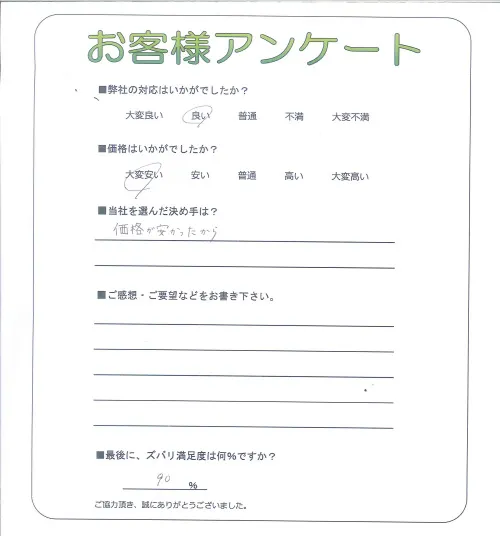 お客様アンケート
■弊社の対応はいかがでしたか？
大変良い 良い 普通 不満 大変不満
■価格はいかがでしたか？
大変安い 安い 普通 高い 大変高い
■当社を選んだ決め手は？
価格が安かったから
■ご感想・ご要望などをお書き下さい。
■最後に、ズバリ満足度は何％ですか？
90 ％
ご協力頂き、誠にありがとうございました。